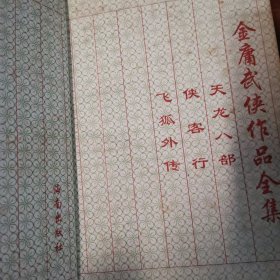 金庸武侠作品全集
天龙八部
侠客行
飞狐外传
海南出版社